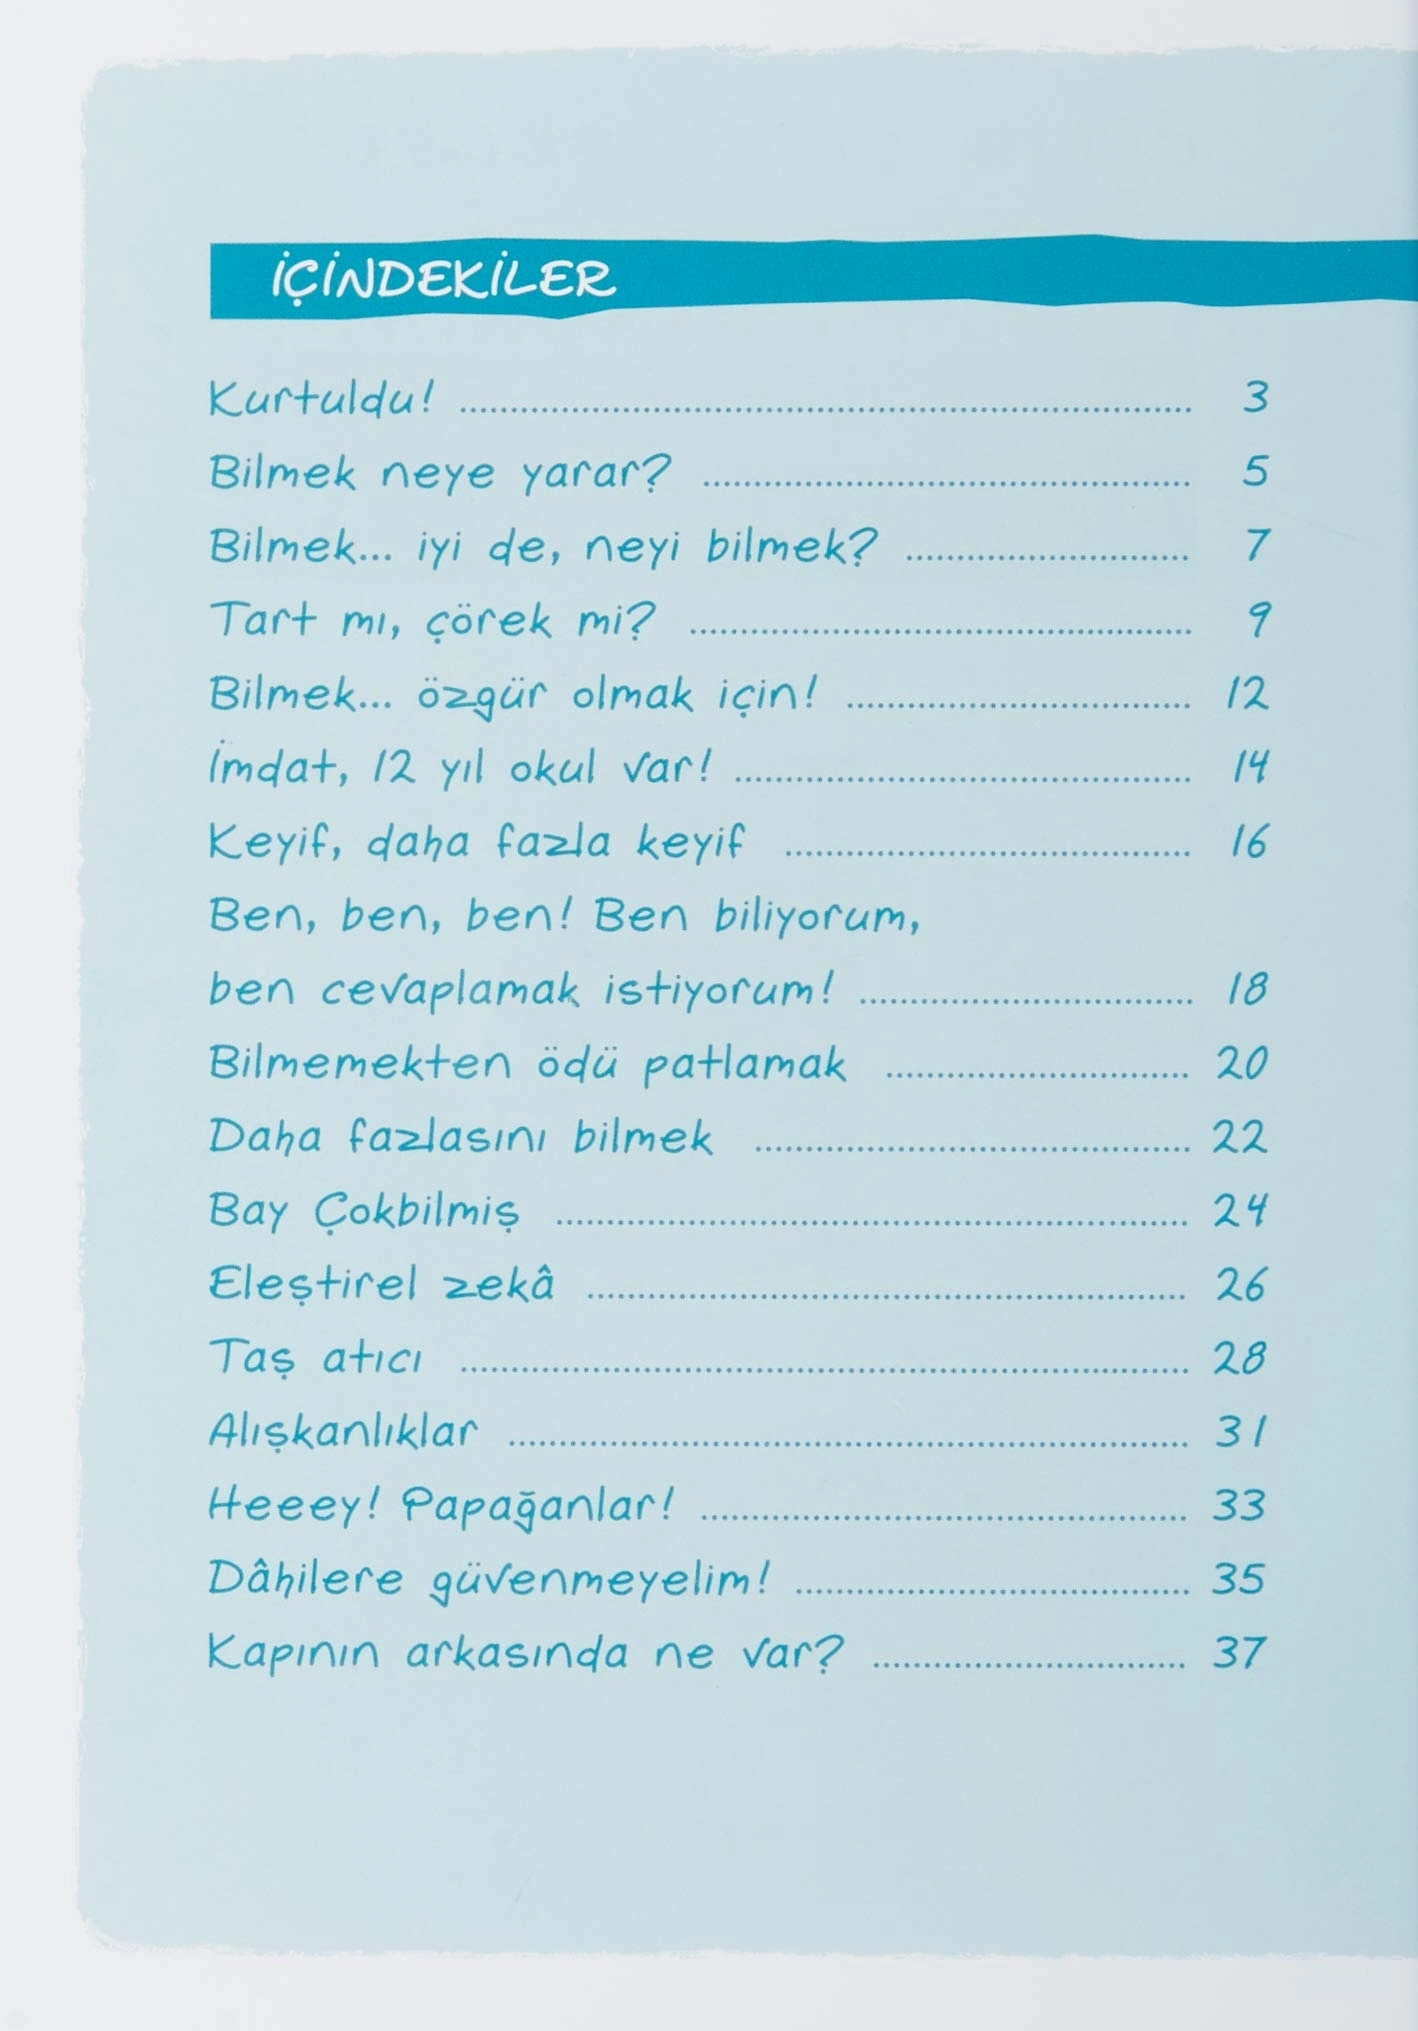 İÇİNDEKİLER
Kurtuldu! ........................................ 3
Bilmek neye yarar? ........................................ 5
Bilmek... iyi de, neyi bilmek? ........................................ 7
Tart mı, çörek mi? ........................................ 9
Bilmek... özgür olmak için! ........................................ 12
İmdat, 12 yıl okul var! ........................................ 14
Keyif, daha fazla keyif ........................................ 16
Ben, ben, ben! Ben biliyorum,
ben cevaplamak istiyorum! ........................................ 18
Bilmemekten ödü patlamak ........................................ 20
Daha fazlasını bilmek ........................................ 22
Bay Çokbilmiş ........................................ 24
Eleştirel zekâ ........................................ 26
Taş atıcı ........................................ 28
Alışkanlıklar ........................................ 31
Heeey! Papağanlar! ........................................ 33
Dâhilere güvenmeyelim! ........................................ 35
Kapının arkasında ne var? ........................................ 37